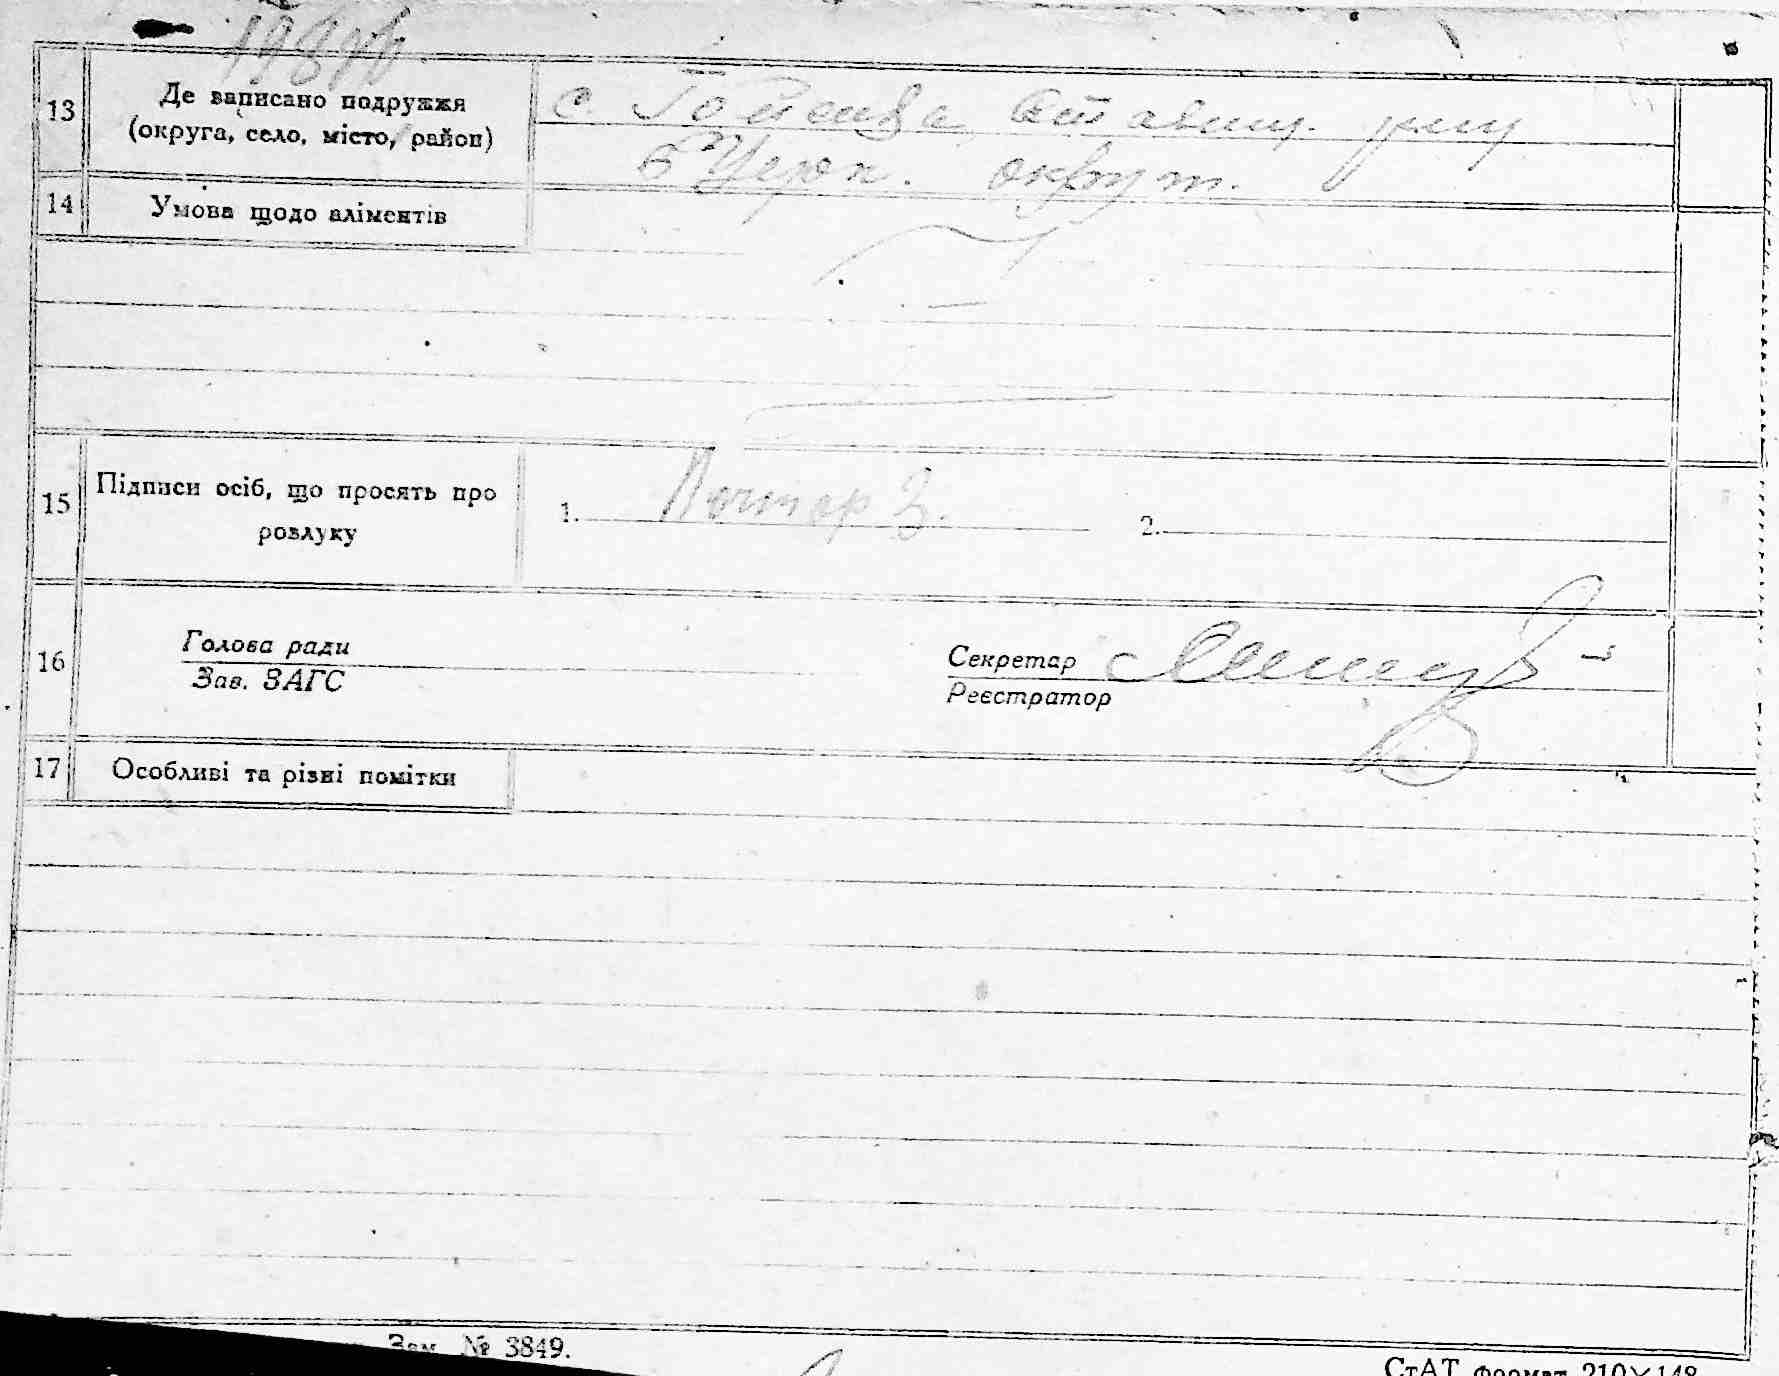 13 Де записано подружжя
(округа, село, місто, район)
с. Гойсивка Ставищ. р-ну
Б Церк. округи.
14 Умова щодо аліментів
15 Підписи осіб, що просять про
розлуку
1. Почтар З. 2.
16 Голова ради
Зав. ЗАГС
Секретар
Реєстратор
17 Особливі та різні помітки
Зам. № 3849.
СтАТ формат 210×148